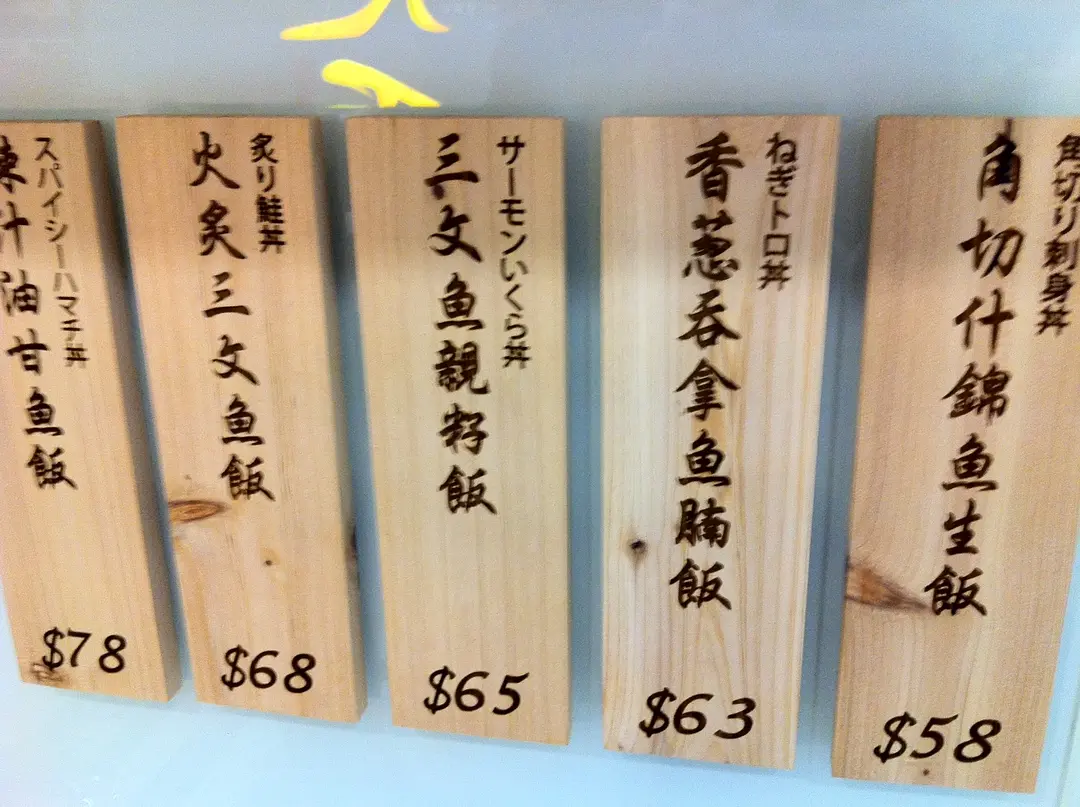 角切り刺身丼
角切什錦魚生飯
$58
ねぎトロ丼
香葱吞拿魚腩飯
$63
サーモンいくら丼
三文魚親籽飯
$65
炙り鮭丼
火炙三文魚飯
$68
スパイシーハマチ丼
辣汁油甘魚飯
$78